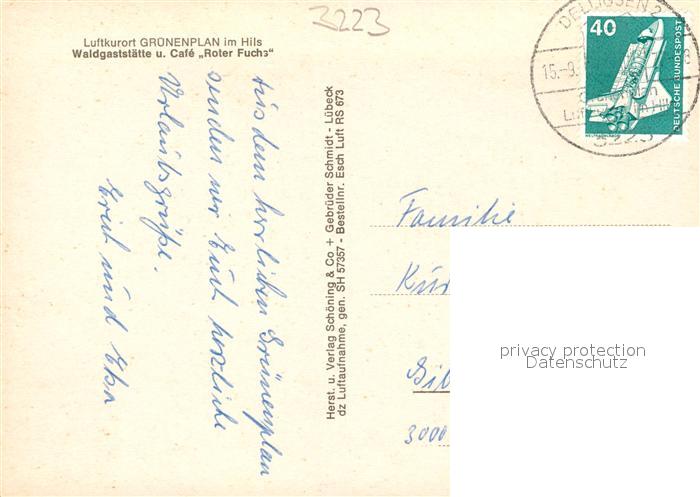 3223
Luftkurort GRÜNENPLAN im Hils
Waldgaststätte u. Café „Roter Fuchs"
Aus dem herrlichen Grünenplan
senden wir Euch herzliche
Urlaubsgrüße.
Erich und
Herst. u. Verlag Schöning & Co + Gebrüder Schmidt - Lübeck
dz Luftaufnahme, gen. SH 57357 - Bestellnr. Esch Luft RS 673
DELLIGSEN 2
15.-9.
3223
40
DEUTSCHE BUNDESPOST
Familie
privacy protection
Datenschutz
3000